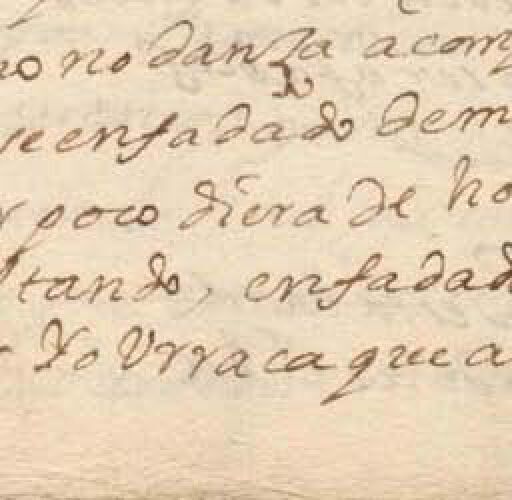 no no danza acom
ue enfadado dem
y poco diera de ho
ltando, enfadad
Yo Urraca que a